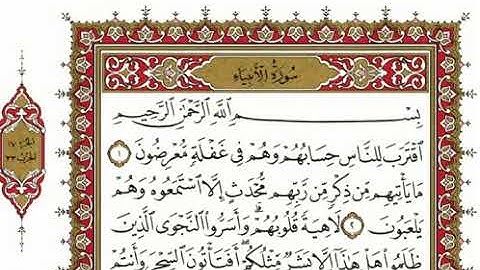 سُورَةُ الْأَنبِيَاءِ
بِسْمِ اللَّهِ الرَّحْمَٰنِ الرَّحِيمِ
اقْتَرَبَ لِلنَّاسِ حِسَابُهُمْ وَهُمْ فِي غَفْلَةٍ مُّعْرِضُونَ ١
مَا يَأْتِيهِم مِّن ذِكْرٍ مِّن رَّبِّهِم مُّحْدَثٍ إِلَّا اسْتَمَعُوهُ وَهُمْ
يَلْعَبُونَ ٢ لَاهِيَةً قُلُوبُهُمْ وَأَسَرُّوا النَّجْوَى الَّذِينَ
ظَلَمُوا هَلْ هَٰذَا إِلَّا بَشَرٌ مِّثْلُكُمْ أَفَتَأْتُونَ السِّحْرَ وَأَنتُمْ
الجزء ١٧
الحزب ٣٣